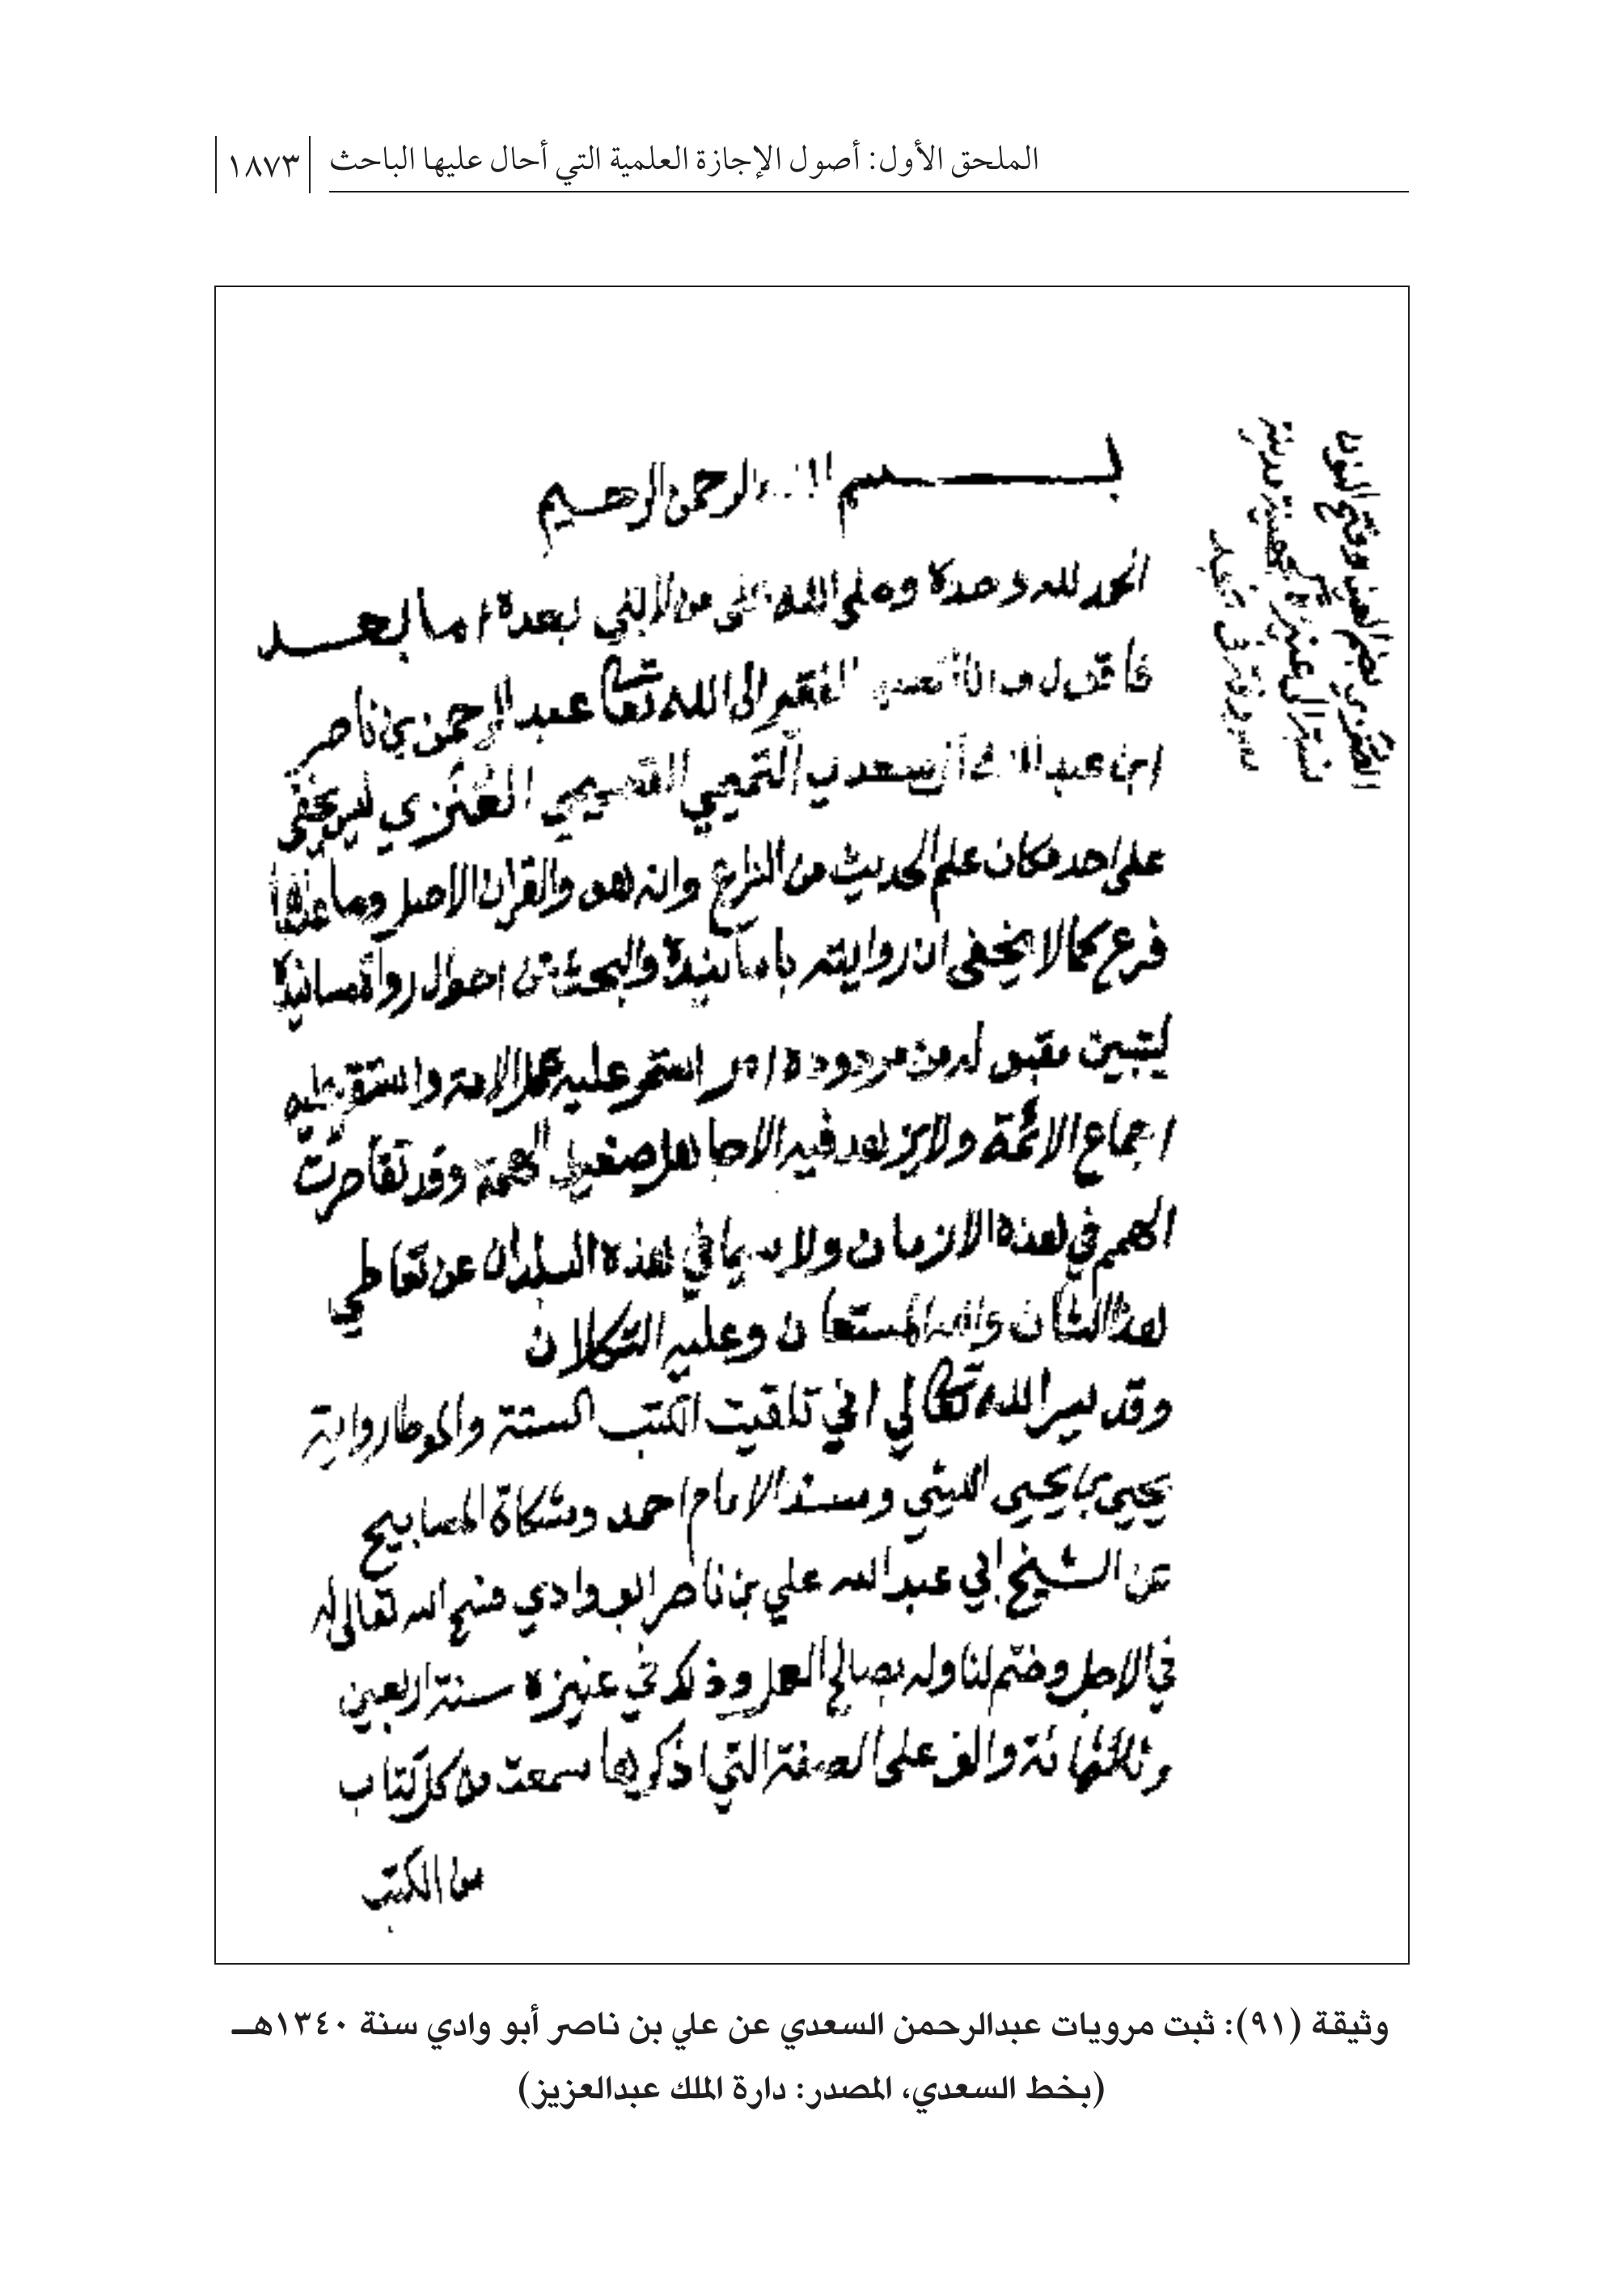 الملحق الأول: أصول الإجازة العلمية التي أحال عليها الباحث
١٨٧٣
بسم الله الرحمن الرحيم
الحمد لله وحده وصلى الله على من لا نبي بعده اما بعد
فاقول وانا العبد الفقير الى الله تعالى عبد الرحمن بن ناصر
ابن عبد الله آل سعدي التميمي القصيمي العُنَزي ليس يخفى
على احد مكان علم الحديث من الشرع وانه هو والقران الاصل وما عداهما
فرع كما لا يخفى ان روايته باسانيده والبحث عن احوال رواة مسانيده
ليتبين مقبوله من مردوده امر استمر عليه عمل الامة واستقر عليه
اجماع الائمة ولا يزهد فيه الا جاهل صغير الهمة وقد تقاصرت
الهمم في هذه الازمان ولا سيما في هذه البلدان عن تعاطي
هذا الشان والله المستعان وعليه التكلان
وقد يسر الله تعالى اني تلقيت الكتب الستة والموطا رواية
يحيى بن يحيى الليثي ومسند الامام احمد ومشكاة المصابيح
عن الشيخ ابي عبد الله علي بن ناصر ابو وادي فسح الله تعالى له
في الاجل وختم لنا وله بصالح العمل وذلك في عنيزة سنة اربعين
وثلاثمائة والف على الصفة التي اذكرها سمعت من كل كتاب
من الكتب
وثيقة (٩١): ثبت مرويات عبدالرحمن السعدي عن علي بن ناصر أبو وادي سنة ١٣٤٠هـ
(بخط السعدي، المصدر: دارة الملك عبدالعزيز)